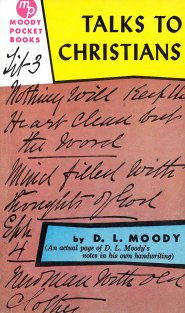 mp
MOODY
POCKET
BOOKS
TALKS TO
CHRISTIANS
Tit-3
Nothing will keep the
Heart Clean but
the Word
Mind filled with
thoughts of God
Eph
4
by D. L. MOODY
(An actual page of D. L. Moody's
notes in his own handwriting)
New Man with old
Clothes